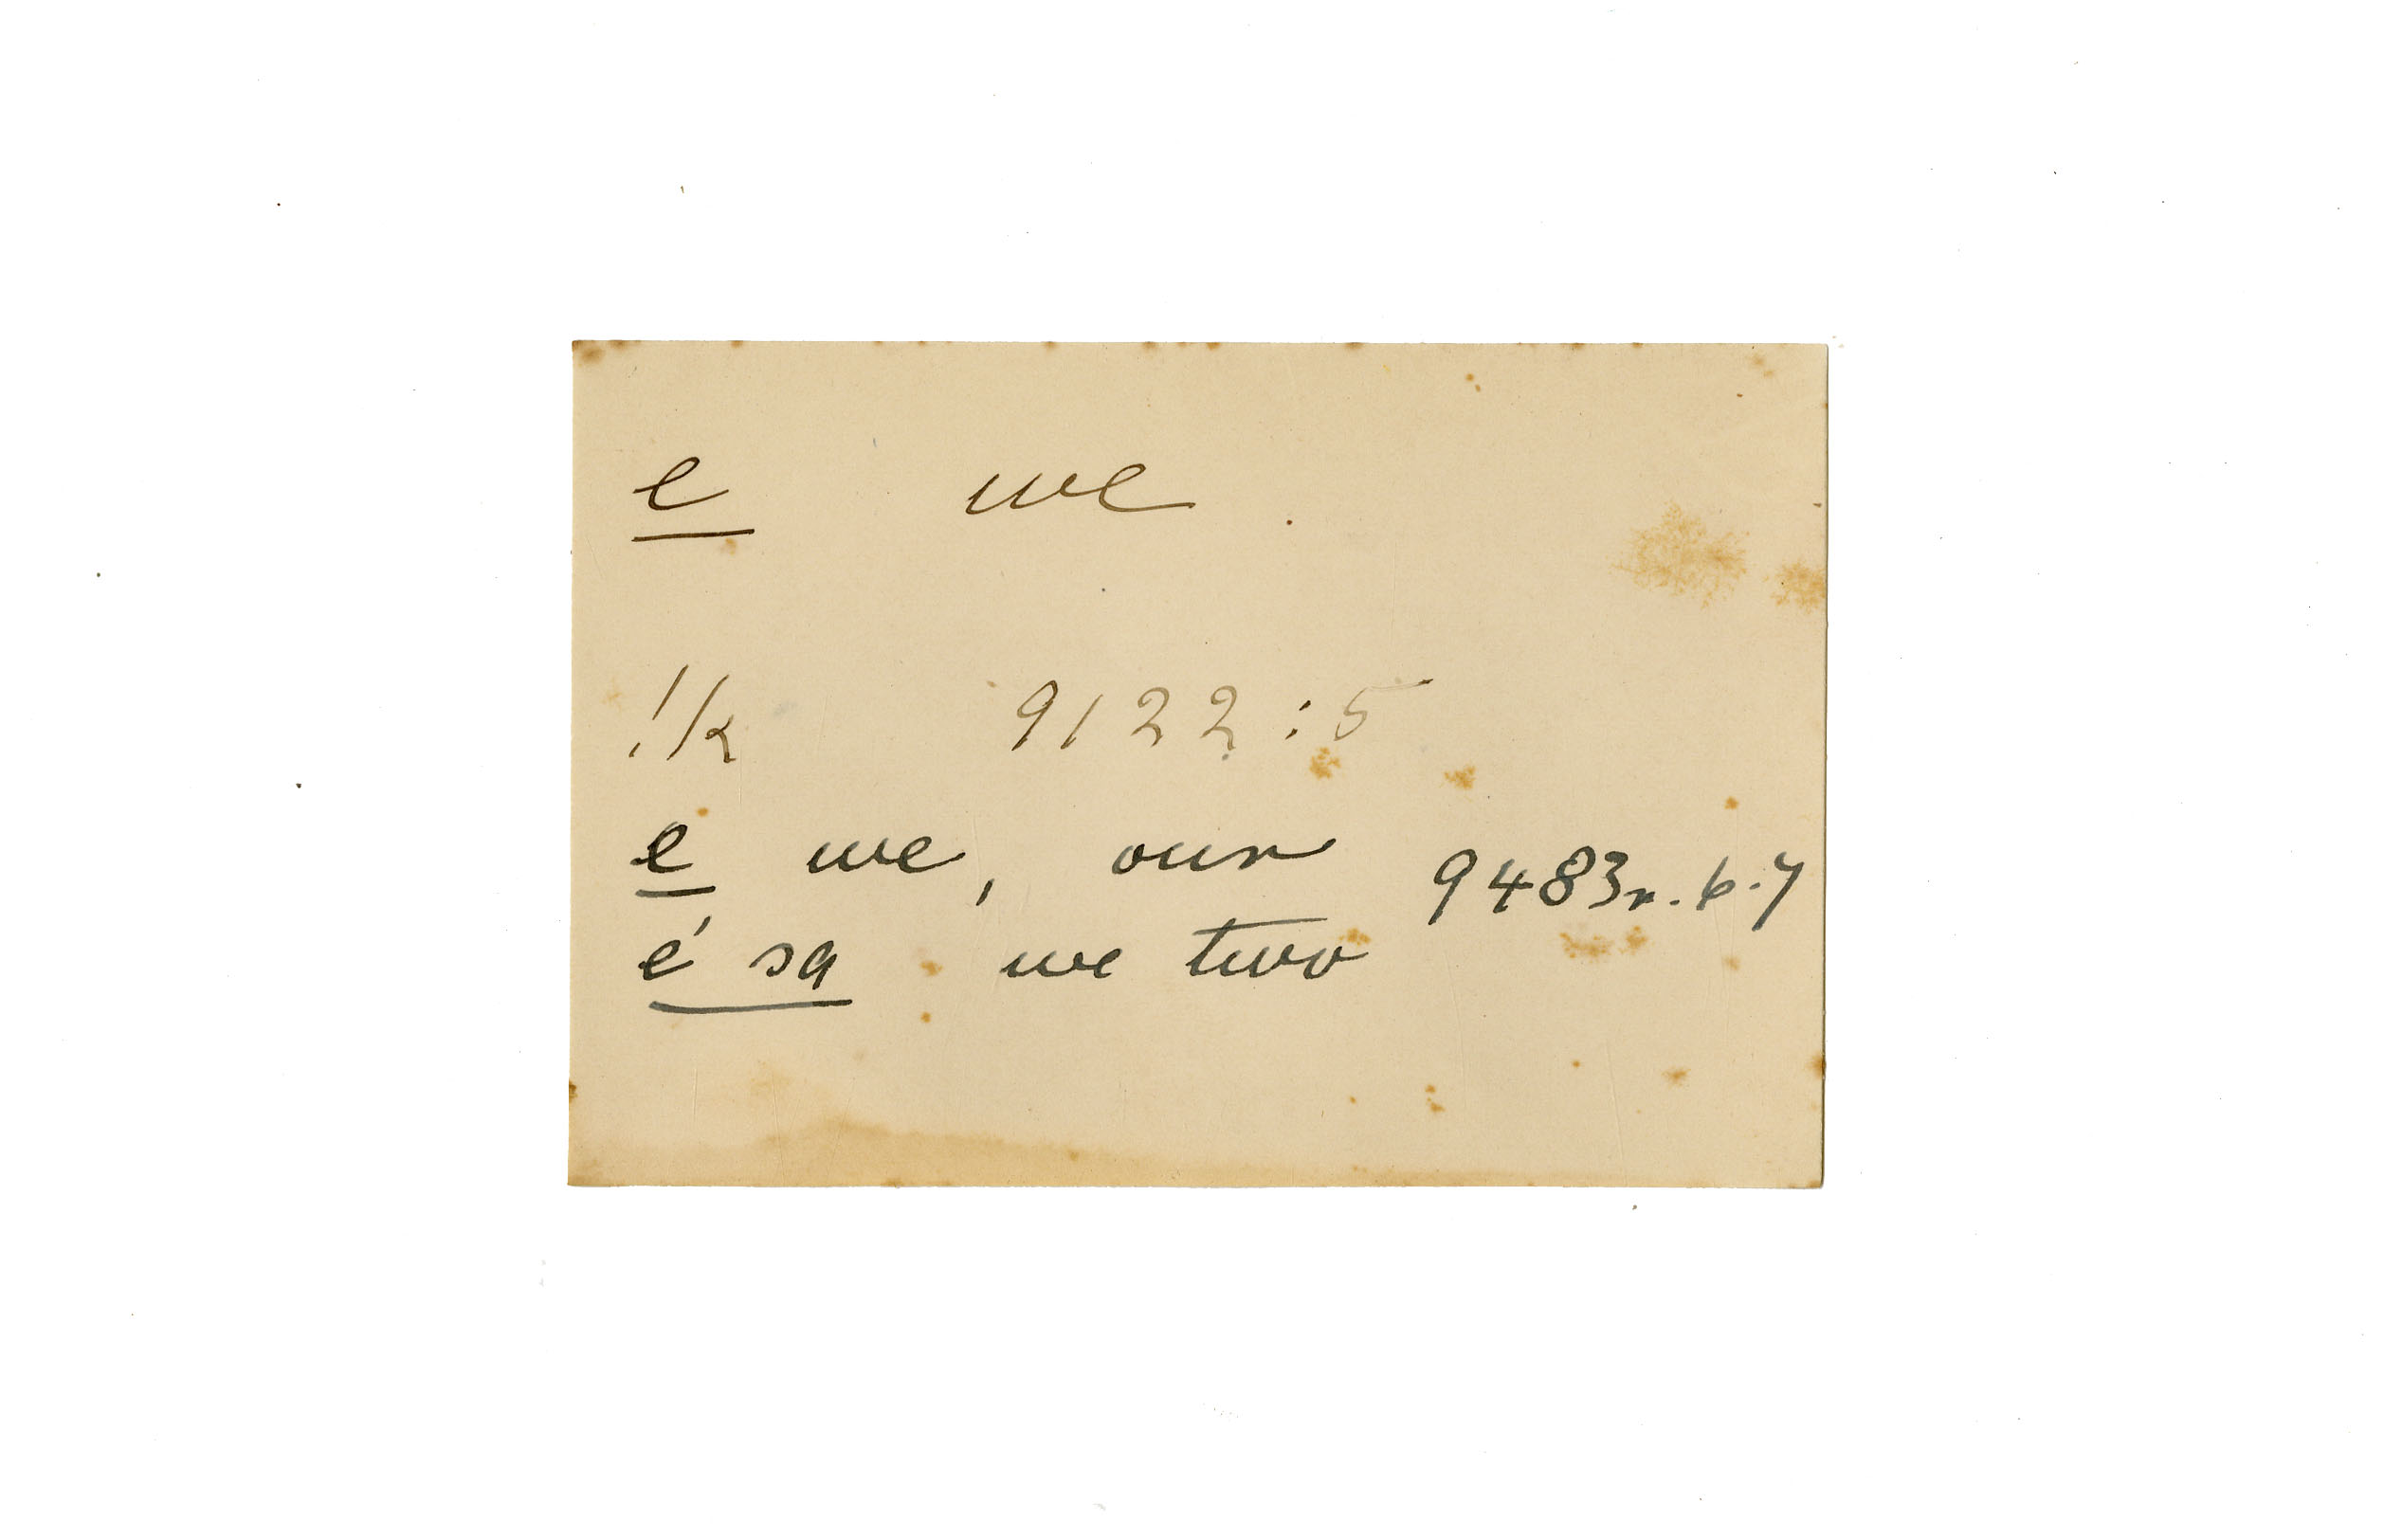 e we
!k 9122:5
e we, our 9483r. 6.7
é sa we two